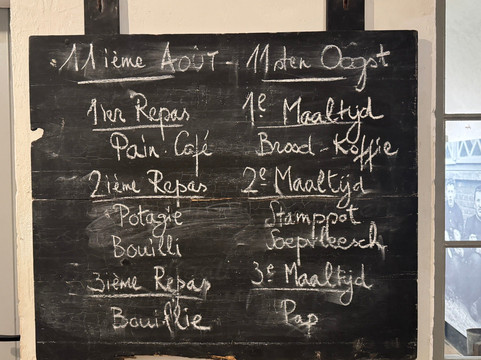 11ième Août - 11sten Oogst
1ier Repas 1e Maaltyd
Pain - Café Brood - Koffie
2ième Repas 2e Maaltijd
Potagie Stamppot
Bouilli Soepvleesch
3ième Repas 3e Maaltijd
Bouillie Pap